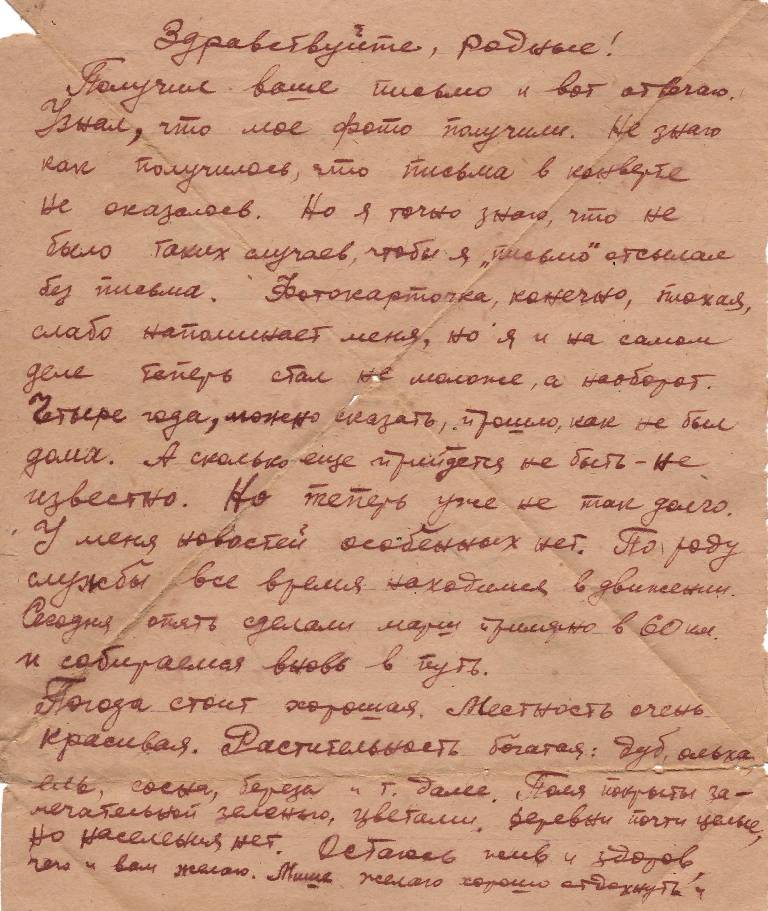 Здравствуйте, родные!
Получил ваше письмо и вот отвечаю.
Узнал, что мое фото получили. Не знаю
как получилось, что письма в конверте
не оказалось. Но я точно знаю, что не
было таких случаев, чтобы я „письмо" отсылал
без письма. Фотокарточка, конечно, плохая,
слабо напоминает меня, но я и на самом
деле теперь стал не моложе, а наоборот.
Четыре года, можно сказать, прошло, как не был
дома. А сколько еще прийдется не быть – не
известно. Но теперь уже не так долго.
У меня новостей особенных нет. По роду
службы все время находимся в движении.
Сегодня опять сделали марш примерно в 60 км.
и собираемся вновь в путь.
Погода стоит хорошая. Местность очень
красивая. Растительность богатая: дуб, ольха
ель, сосна, береза и т. далее. Поля покрыты за-
мечательной зеленью, цветами. Деревни почти целые,
но населения нет. Остаюсь жив и здоров,
чего и вам желаю. Мише желаю хорошо отдохнуть и